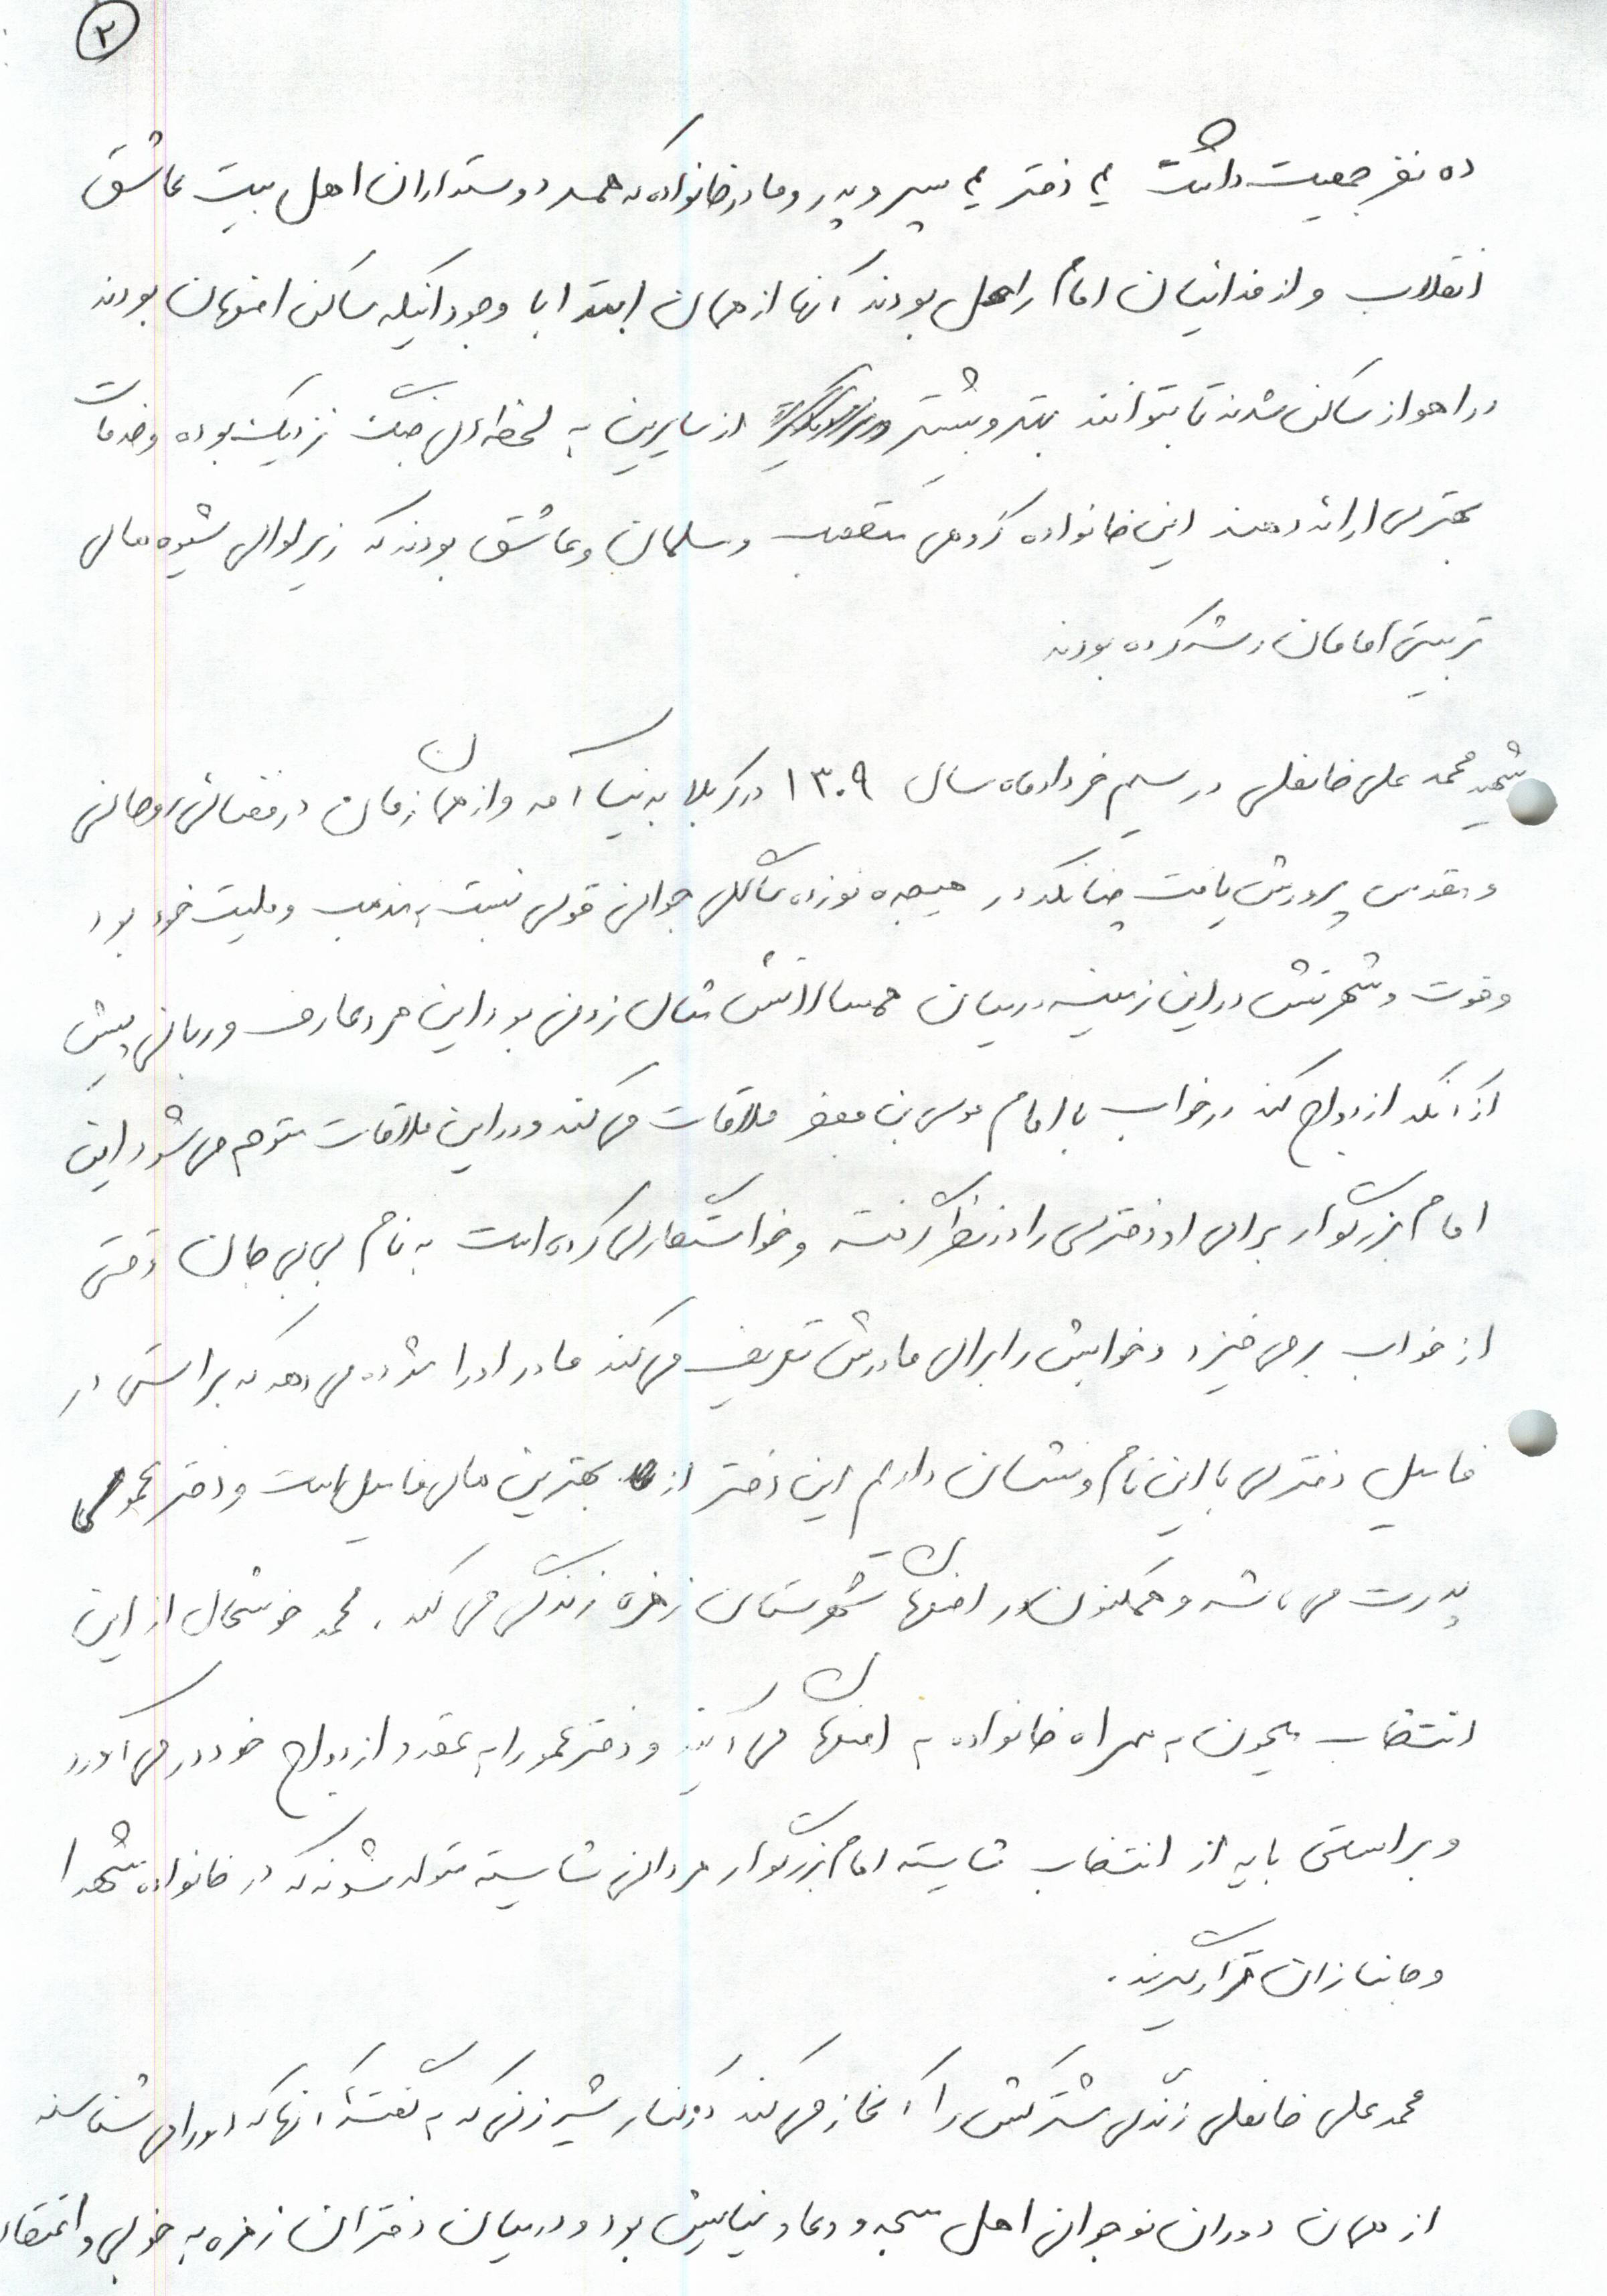 ۲
ده نفر جمعیت داشت ۴ دختر ۴ پسر و پدر و مادر خانواده که همه دوستداران اهل بیت عاشق
انقلاب و از فدائیان امام راحل بودند آنها از همان ابتدا با وجود اینکه ساکن اصفهان بودند
در اهواز ساکن شدند تا بتوانند بهتر و بیشتر از سایرین به لحظه‌های جنگ نزدیک بوده و خدمات
بهتری ارائه دهند این خانواده گروهی متعصب و مسلمان و عاشق بودند که زیر لوای شیوه های
تربیتی امامان رشد کرده بودند
شهید محمد علی خانعلی در سیم خرداد ماه سال ۱۳۰۹ در کربلا به دنیا آمد و از همان زمان در فضائی روحانی
و مقدس پرورش یافت چنانکه در هیجده نوزده سالگی جوانی قوی نسبت به مذهب و ملیت خود بود
و قوت و شهرتش در این زمینه در میان همسالانش مثال زدنی بود این مرد عارف و ربانی پیش
از آنکه ازدواج کند در خواب با امام موسی بن جعفر ملاقات می کند و در این ملاقات متوجه می شود این
امام بزرگوار برای او دختری را در نظر گرفته و خواستگاری کرده است به نام بی بی جان وقتی
از خواب بر می خیزد و خوابش را برای مادرش تعریف می کند مادر او را مژده می دهد که براستی در
فامیل دختری با این نام و نشان داریم این دختر از بهترین های فامیل است و دختر عموی
پدرت می باشد و هم اکنون در اصفهان شهرستان زهره زندگی می کند . محمد خوشحال از این
انتخاب میمون به همراه خانواده به اصفهان می آیند و دختر عمو را به عقد و ازدواج خود در می آورد
و براستی باید از انتخاب شایسته امام بزرگوار مردانی شایسته متولد شوند که در خانواده شهدا
و جانبازان قرار گیرند .
محمد علی خانعلی زندگی مشترکش را آغاز می کند در کنار شیر زنی که به گفته آنها که او را می شناسند
از همان دوران نوجوانی اهل مسجد و دعا و نیایش بود و در میان دختران زهره به خوبی و اعتقاد